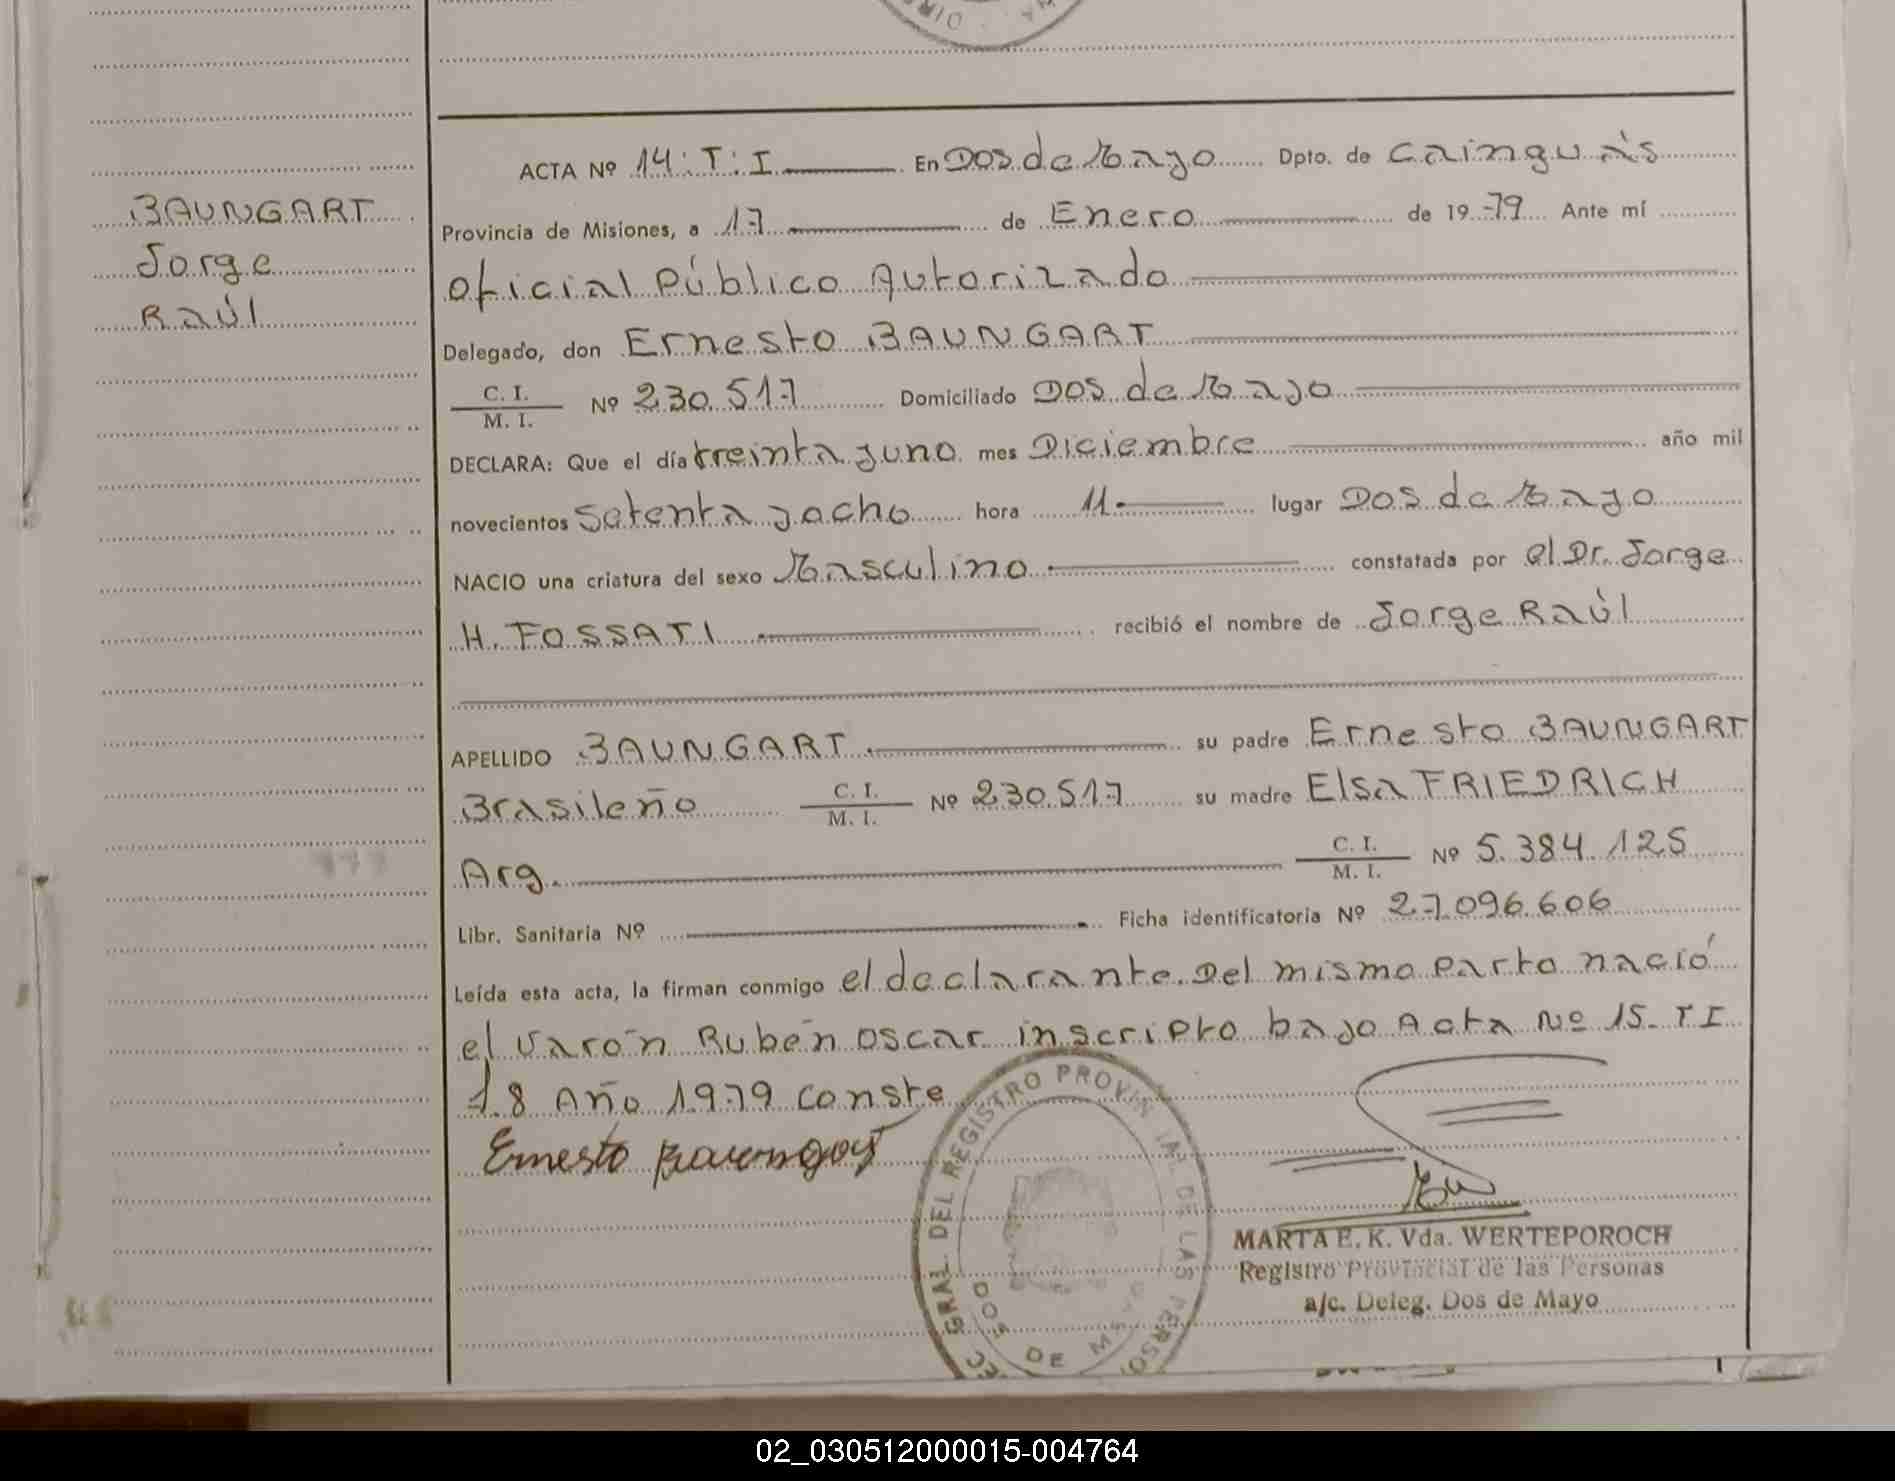 DIR
ACTA Nº 14: T: I En Dos de Mayo Dpto. de Cainguás
BAUNGART
Provincia de Misiones, a 17 de Enero de 19 79 Ante mí
Jorge
oficial Público Autorizado
Raúl
Delegado, don Ernesto BAUNGART
C. I.
M. I. Nº 230.517 Domiciliado Dos de Mayo
DECLARA: Que el día treinta y uno mes Diciembre año mil
novecientos Setenta y ocho hora 11 lugar Dos de Mayo
NACIO una criatura del sexo Masculino constatada por el Dr. Jorge
H. FOSSATI recibió el nombre de Jorge Raúl
APELLIDO BAUNGART su padre Ernesto BAUNGART
Brasileño C. I. M. I. Nº 230.517 su madre Elsa FRIEDRICH
Arg. C. I. M. I. Nº 5.384.125
Libr. Sanitaria Nº Ficha identificatoria Nº 27.096.606
Leída esta acta, la firman conmigo el declarante. Del mismo parto nació
el varón Rubén Oscar inscripto bajo Acta Nº 15. T I
18 Año 1979 conste
Ernesto Baungart
GRAL. DEL REGISTRO PROVIN IAL DE LAS PERSO
DOS DE M
MARTA E. K. Vda. WERTEPOROCH
Registro Provincial de las Personas
a/c. Deleg. Dos de Mayo
02_030512000015-004764